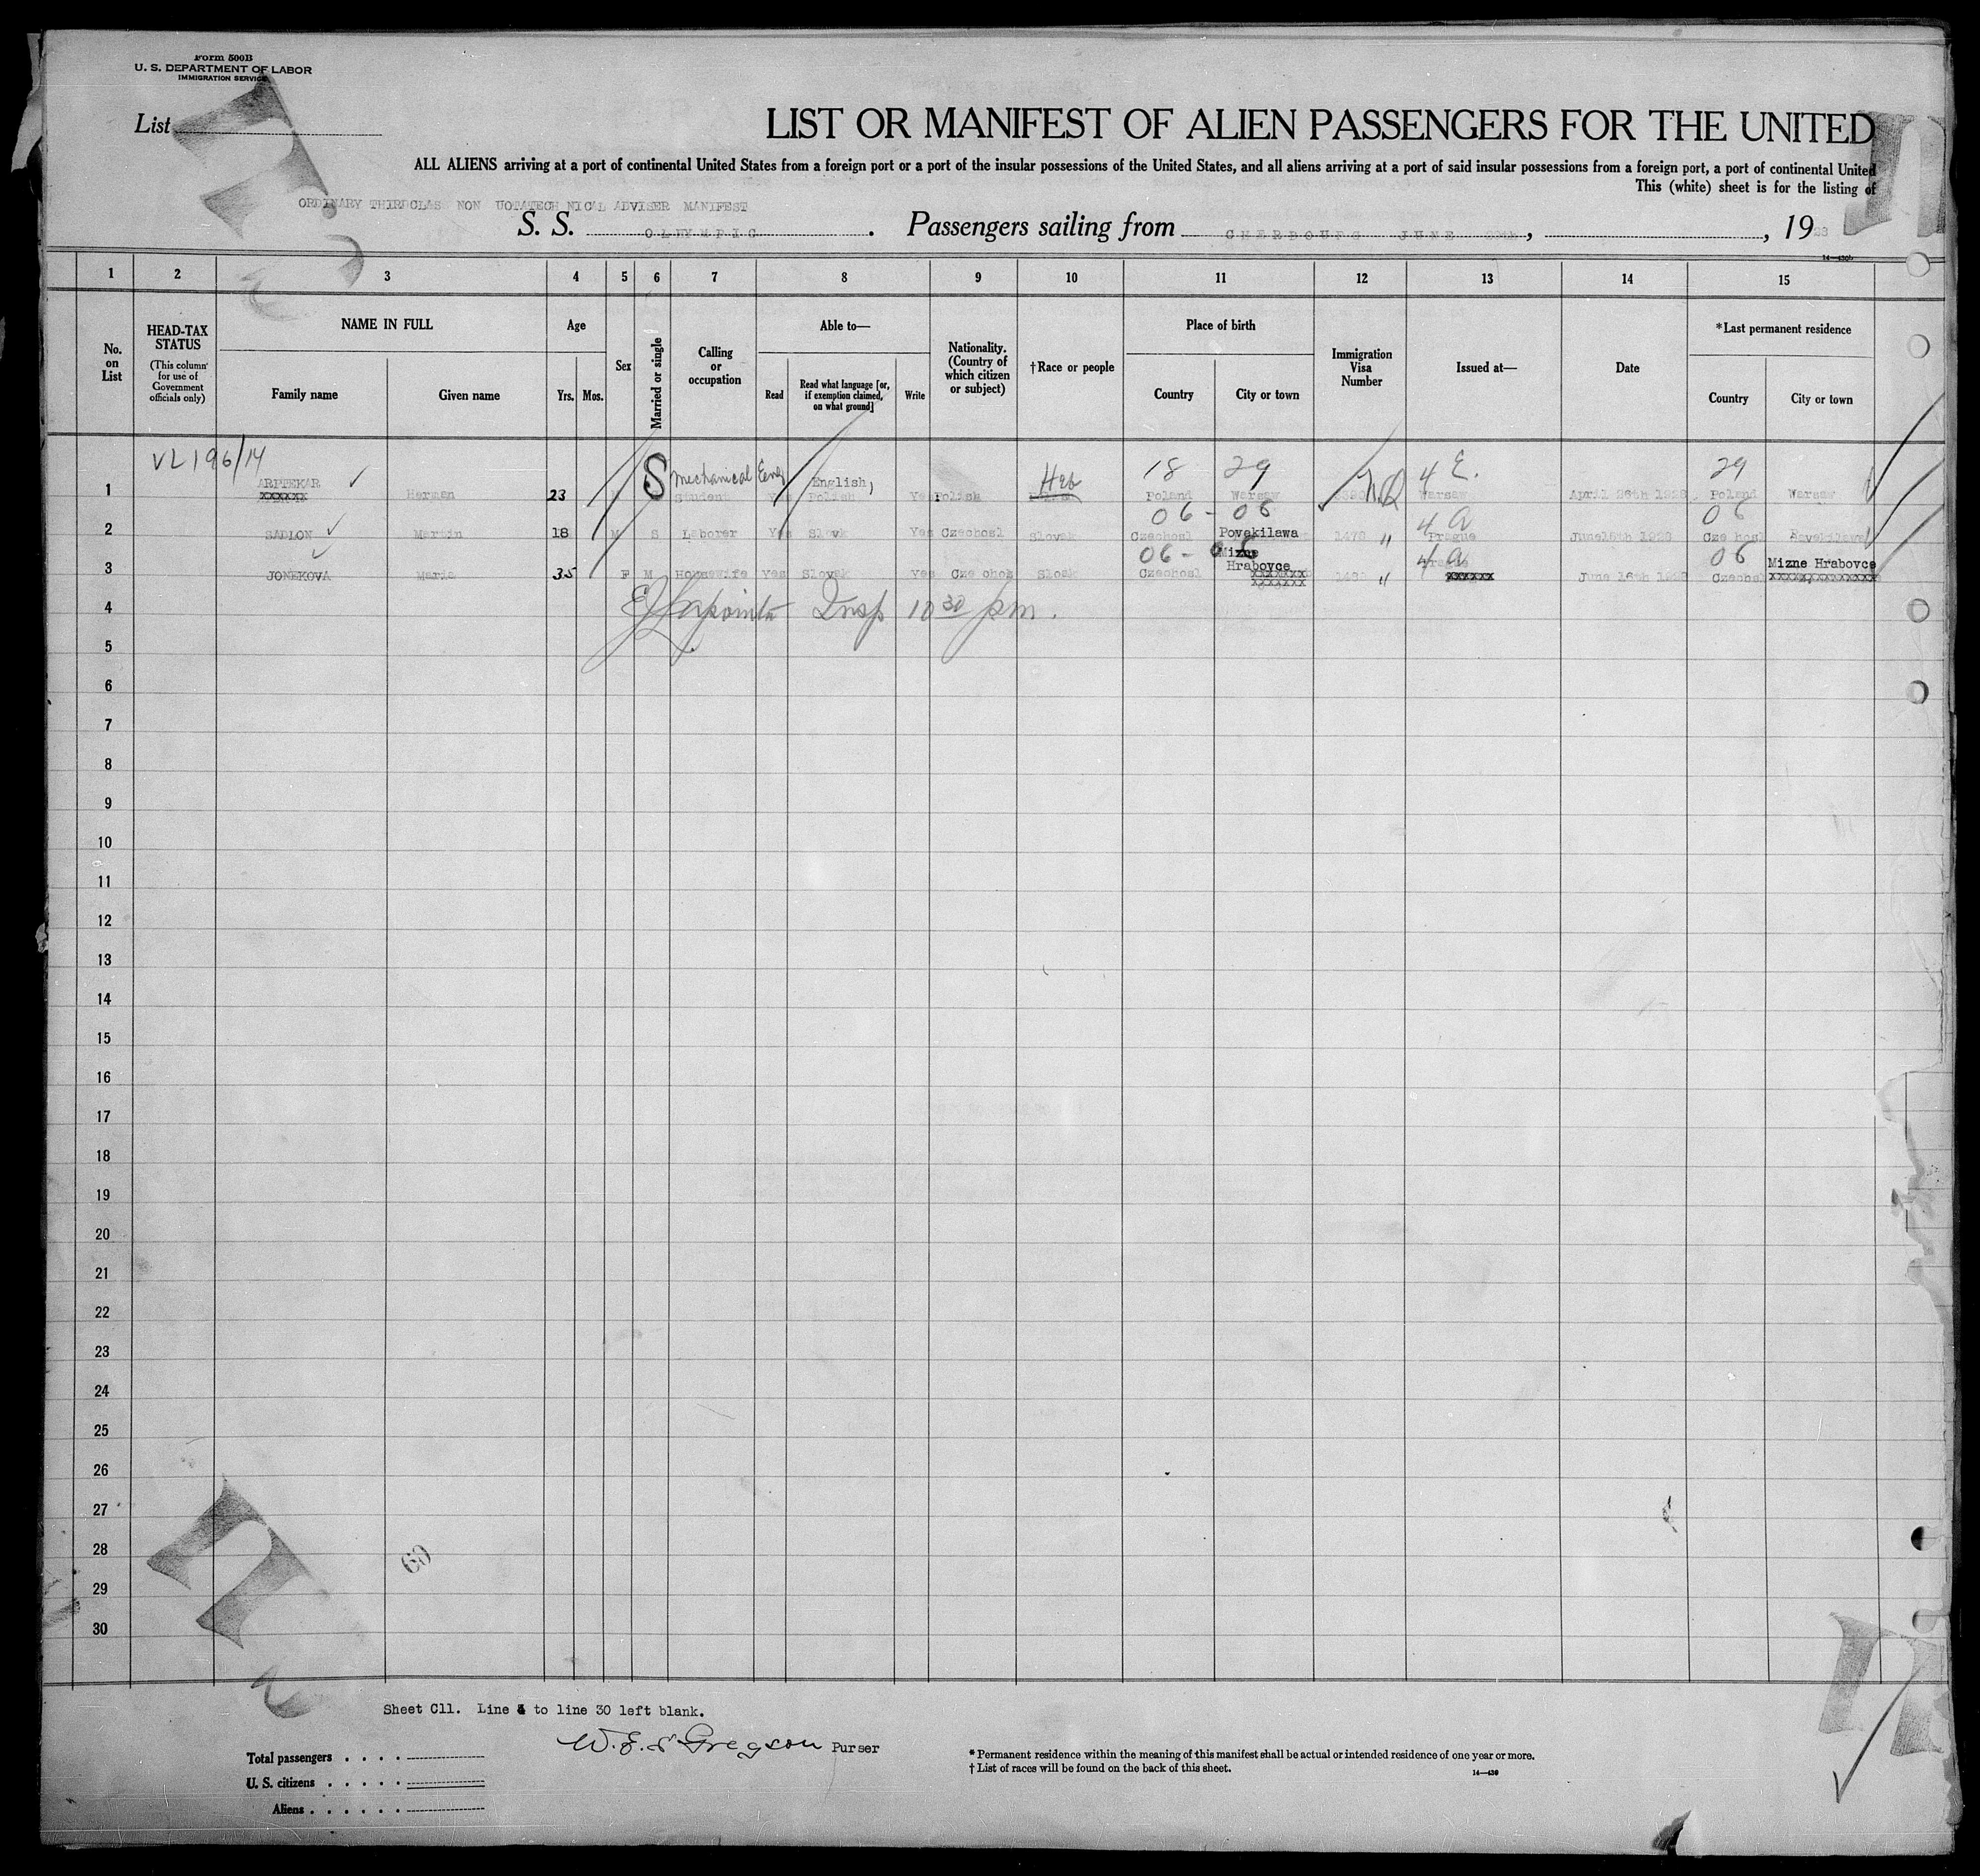 Form 500B
U. S. DEPARTMENT OF LABOR
IMMIGRATION SERVICE
List
LIST OR MANIFEST OF ALIEN PASSENGERS FOR THE UNITED
ALL ALIENS arriving at a port of continental United States from a foreign port or a port of the insular possessions of the United States, and all aliens arriving at a port of said insular possessions from a foreign port, a port of continental United
This (white) sheet is for the listing of
ORDINARY THIRDCLAS NON UOTATECH NICAL ADVISER MANIFEST
S. S. OLYMPIC. Passengers sailing from CHERBOURG JUNE , , 1928
14—430b
1 2 3 4 5 6 7 8 9 10 11 12 13 14 15
No. on List
HEAD-TAX STATUS
(This column for use of Government officials only)
NAME IN FULL
Family name Given name
Age
Yrs. Mos.
Sex
Married or single
Calling or occupation
Able to—
Read
Read what language [or, if exemption claimed, on what ground]
Write
Nationality. (Country of which citizen or subject)
†Race or people
Place of birth
Country City or town
Immigration Visa Number
Issued at—
Date
*Last permanent residence
Country City or town
VL 196/14
S Mechanical Eng English, Heb 18 29 4 E. 29
1 ARPTEKAR Herman 23 Student Yes Polish Yes Polish Poland Warsaw N.Q Warsaw April 26th 1928. Poland Warsaw
06 - 06 4 a 06
2 SADLON Martin 18 M S Laborer Yes Slovk Yes Czechosl Slovak Czechosl Povekilawa 1479 " Prague June15th 1928 Cze hosl
06 - 06 Mizne 4 a 06
3 JONEKOVA Maria 35 F M Housewife Yes Slovak Yes Cze chos Sloak Czechosl Hrabovce " June 16th 1928 Czechsl Mizne Hrabovce
4 Insp 10 30 pm.
5
6
7
8
9
10
11
12
13
14
15
16
17
18
19
20
21
22
23
24
25
26
27
28
29
30
60
Sheet C11. Line 4 to line 30 left blank.
W. E. S Gregson Purser
Total passengers . . . .
U. S. citizens . . . . .
Aliens . . . . . .
* Permanent residence within the meaning of this manifest shall be actual or intended residence of one year or more.
† List of races will be found on the back of this sheet.
14—430